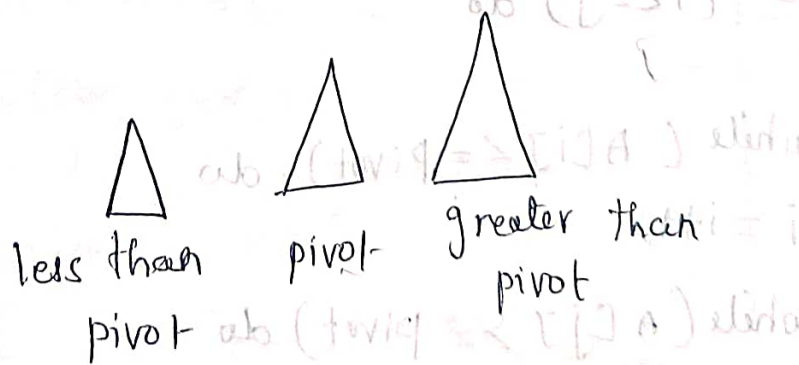 less than
pivot
pivot
greater than
pivot